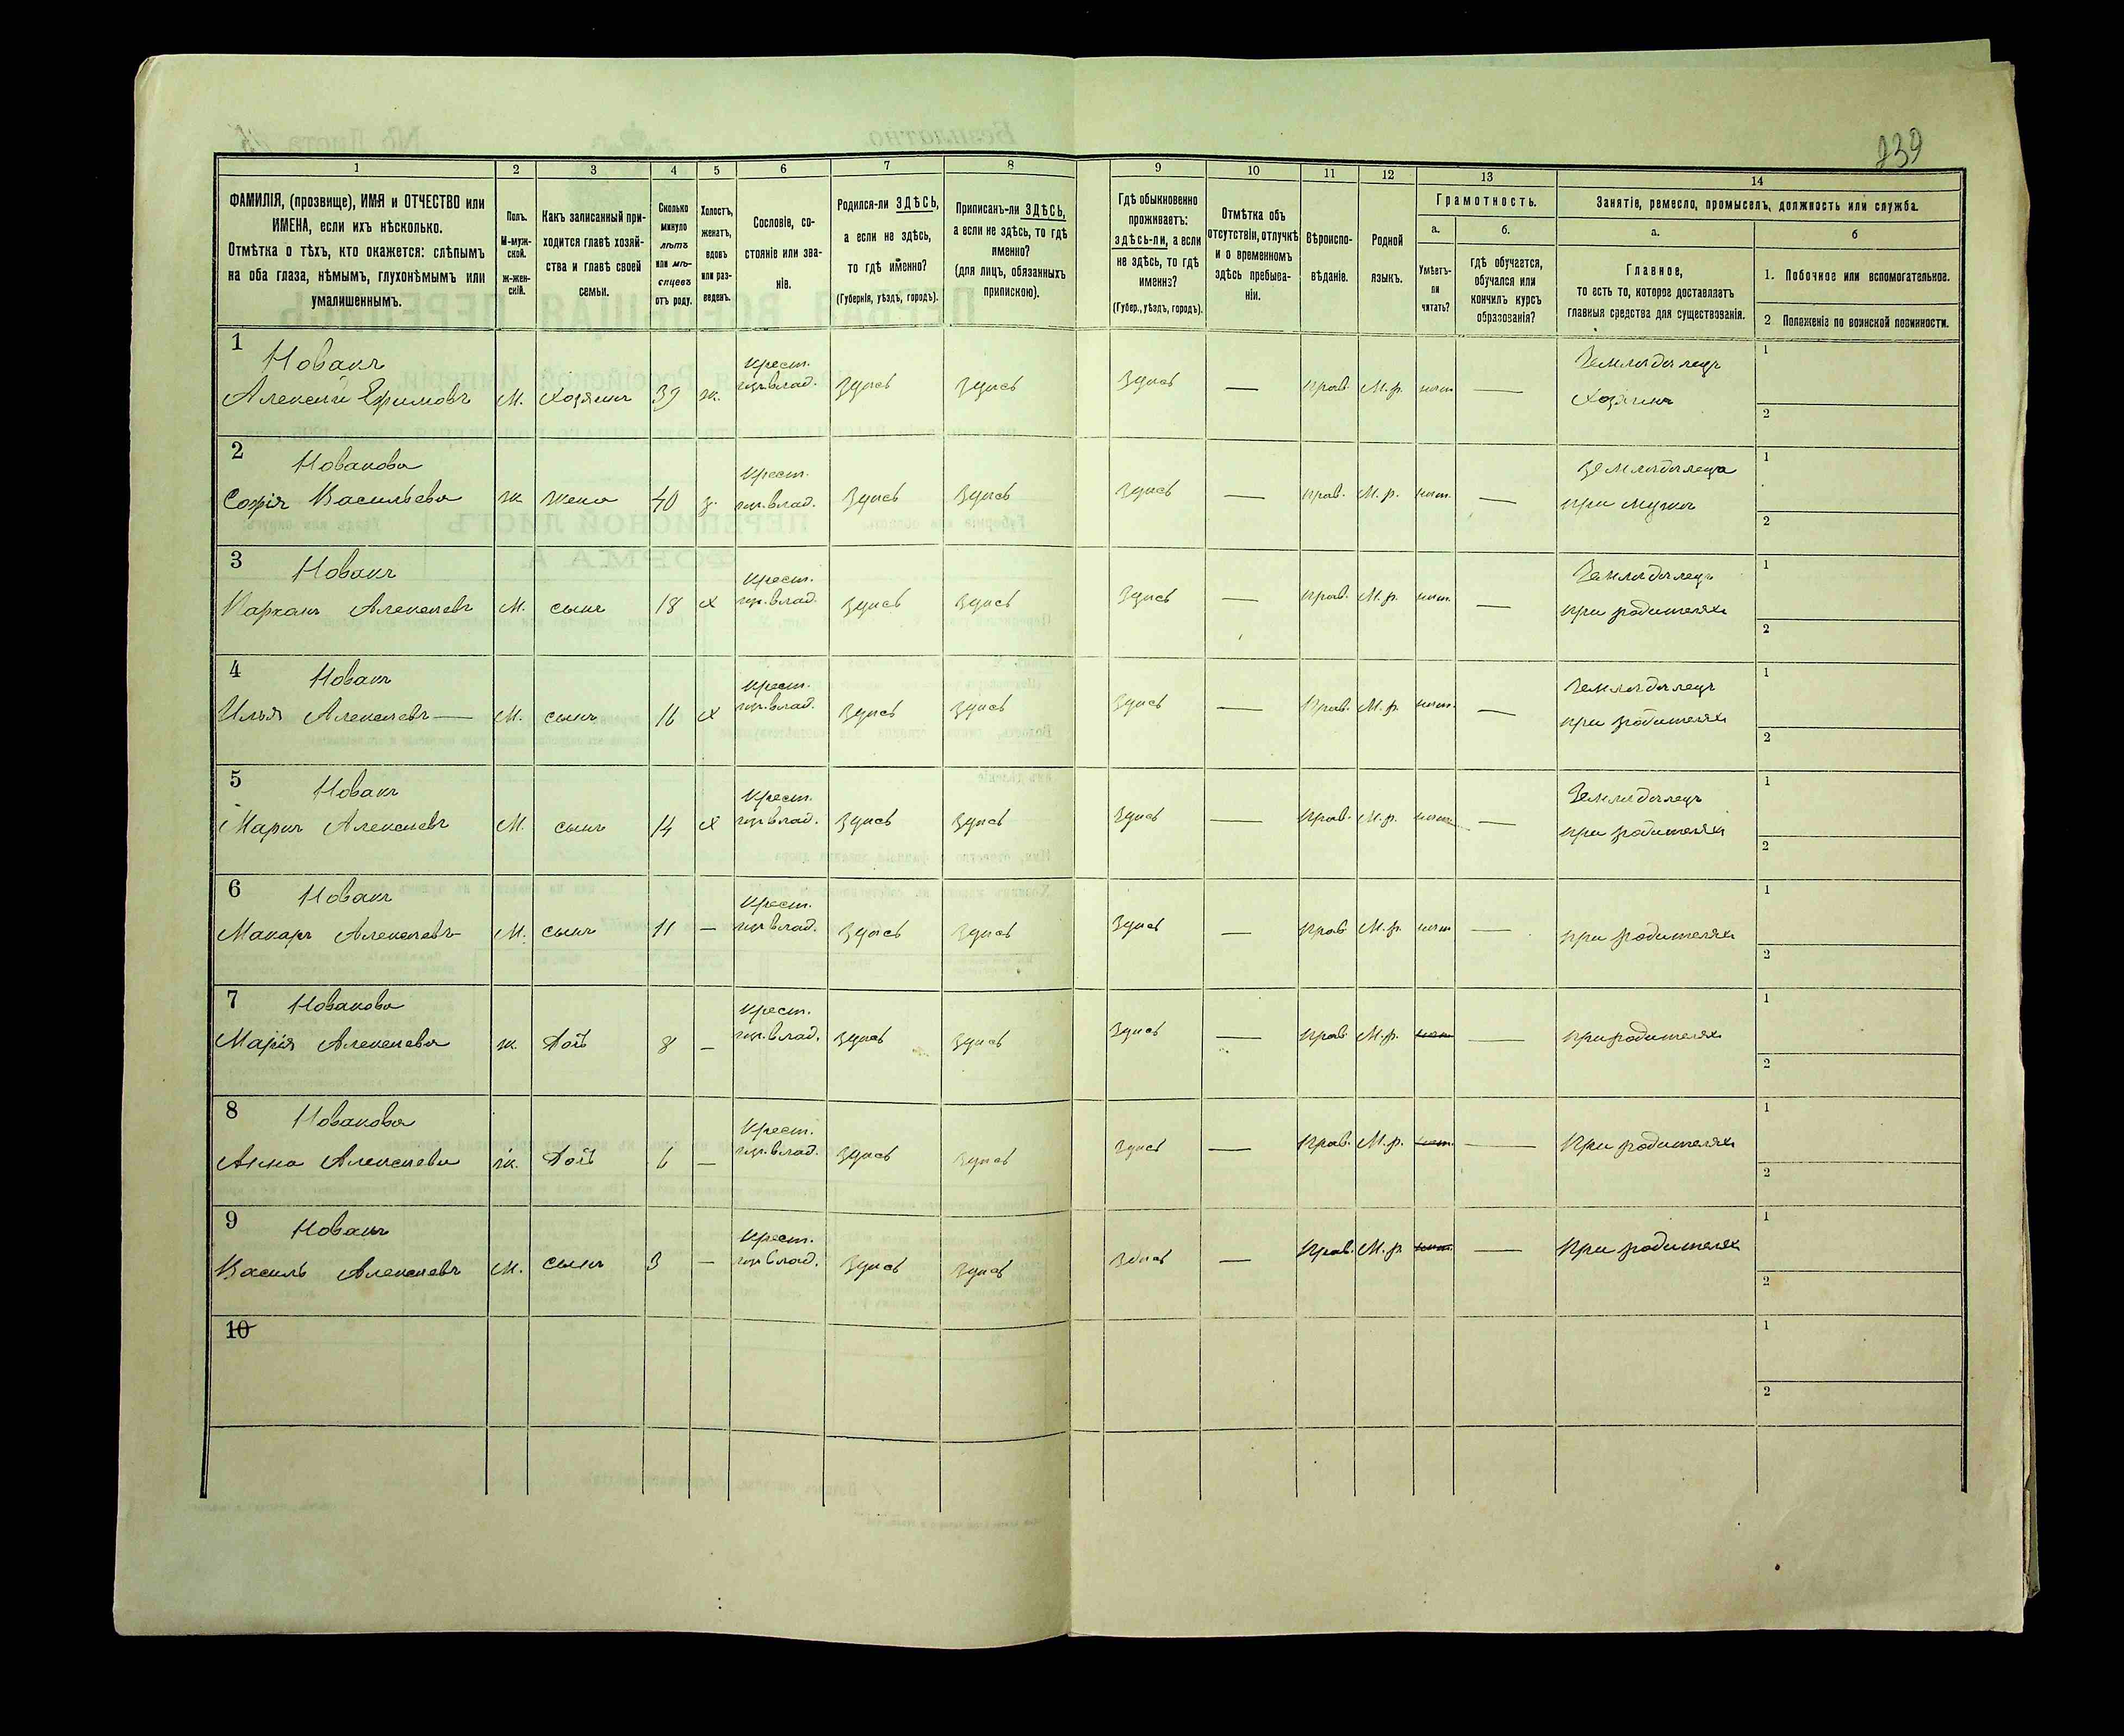 139
1
2
3
4
5
6
7
8
9
10
11
12
13
14
ФАМИЛІЯ, (прозвище), ИМЯ и ОТЧЕСТВО или
ИМЕНА, если ихъ нѣсколько.
Отмѣтка о тѣхъ, кто окажется: слѣпымъ
на оба глаза, нѣмымъ, глухонѣмымъ или
умалишеннымъ.
Полъ.
М-муж-
ской.
Ж-жен-
скій.
Какъ записанный при-
ходится главѣ хозяй-
ства и главѣ своей
семьи.
Сколько
минуло
лѣтъ
или мѣ-
сяцевъ
отъ роду.
Холостъ,
женатъ,
вдовъ
или раз-
веденъ.
Сословіе, со-
стояніе или зва-
ніе.
Родился-ли ЗДѢСЬ,
а если не здѣсь,
то гдѣ именно?
(Губернія, уѣздъ, городъ).
Приписанъ-ли ЗДѢСЬ,
а если не здѣсь, то гдѣ
именно?
(для лицъ, обязанныхъ
припискою).
Гдѣ обыкновенно
проживаетъ:
здѣсь-ли, а если
не здѣсь, то гдѣ
именно?
(Губер., уѣздъ, городъ).
Отмѣтка объ
отсутствіи, отлучкѣ
и о временномъ
здѣсь пребыва-
ніи.
Вѣроиспо-
вѣданіе.
Родной
языкъ.
Грамотность.
а.
Умѣетъ-
ли
читать?
б.
гдѣ обучается,
обучался или
кончилъ курсъ
образованія?
Занятіе, ремесло, промыселъ, должность или служба.
а.
Главное,
то есть то, которое доставляетъ
главныя средства для существованія.
б
1. Побочное или вспомогательное.
2 Положеніе по воинской повинности.
1 Новакъ Крест. Земледѣлецъ 1
Алексѣй Ефимовъ М. Хозяинъ 39 ж. гор. влад. Здѣсь Здѣсь Здѣсь — прав. М.р. нѣт — Хозяинъ 2
2 Новакова Крест. Земледѣлеца 1
Софія Васильева ж жена 40 з. гор. влад. Здѣсь Здѣсь Здѣсь — прав. М.р. нѣт. — при мужѣ 2
3 Новакъ Крест. Земледѣлецъ 1
Алексѣевъ М. сынъ 18 х гор. влад. Здѣсь Здѣсь Здѣсь — прав. М.р. нѣт. — при родителяхъ 2
4 Новакъ Крест. Земледѣлецъ 1
Илья Алексѣевъ — М. сынъ 16 х гор. влад. Здѣсь Здѣсь Здѣсь — Прав. М.р. нѣт. — при родителяхъ 2
5 Новакъ Крест. Земледѣлецъ 1
Маркъ Алексѣевъ М. сынъ 14 х гор. влад. Здѣсь Здѣсь Здѣсь — прав. М.р. нѣт — при родителяхъ 2
6 Новакъ Крест. 1
Макаръ Алексѣевъ М. сынъ 11 — гор. влад. Здѣсь Здѣсь Здѣсь — прав М.р. нѣт — при родителяхъ 2
7 Новакова Крест. 1
Марія Алексѣева ж. Дочь 8 — гор. влад. Здѣсь Здѣсь Здѣсь — прав М.р. нѣт — при родителяхъ 2
8 Новакова Крест. 1
Анна Алексѣева ж. Дочь 6 — гор. влад. Здѣсь Здѣсь Здѣсь — прав. М.р. нѣт. — При родителяхъ 2
9 Новакъ Крест. 1
Василь Алексѣевъ М. сынъ 3 — гор. влад. Здѣсь Здѣсь Здѣсь — прав. М.р. нѣт. — При родителяхъ 2
10 1
2